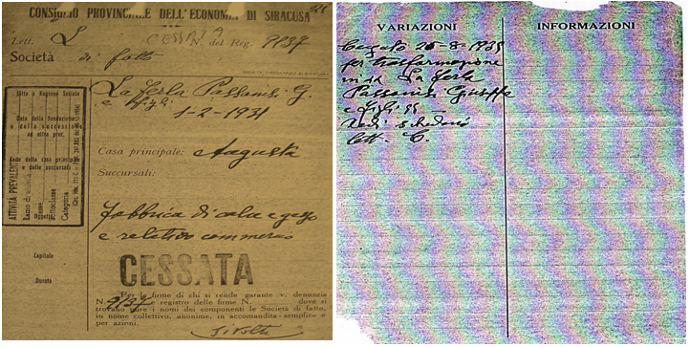 CONSIGLIO PROVINCIALE DELL'ECONOMIA DI SIRACUSA
Lett. L CESSATA N. del Reg. 9137
Società di fatto
La Ferla Passanisi G.
e figli
1-2-1931
Ditta o Ragione Sociale
Data della fondazione
e della successione
ad altra prec.
Sede della casa principale
e delle succursali
ATTIVITÀ PREVALENTE
Ramo di
Classe
Sottoclasse
Categoria
Casa principale: Augusta
Succursali:
Fabbrica di calce e gesso
e relativo commercio
Capitale
Durata
CESSATA
Per le firme di chi si rende garante v. denuncia
N. 9137 e registro delle firme N. dove si
trovano pure i nomi dei componenti le Società di fatto,
in nome collettivo, anonime, in accomandita semplice e
per azioni.
si volti
VARIAZIONI
Cessato 26-8-1935
per trasformazione
in La Ferla
Passanisi Giuseppe
e figli
Vedi schedario
lett. C.
INFORMAZIONI